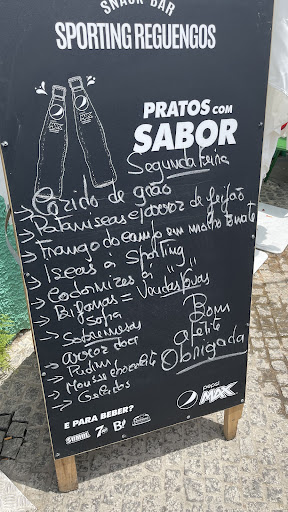 SNACK BAR
SPORTING REGUENGOS
pepsi MAX
PRATOS COM
SABOR
Segunda feira
> Cozido de grão
> Pataniscas e arroz de feijão
> Frango do campo em molho tomate
> Iscas à Sporting
> Codornizes à " "
> Bifanas =
> Sopa
> Sobremesas
> arroz doce
> Pudim
> Mousse chocolate
> Gelados
Bom
apetite
Obrigada
pepsi
MAX
E PARA BEBER?
SUMOL 7up B!